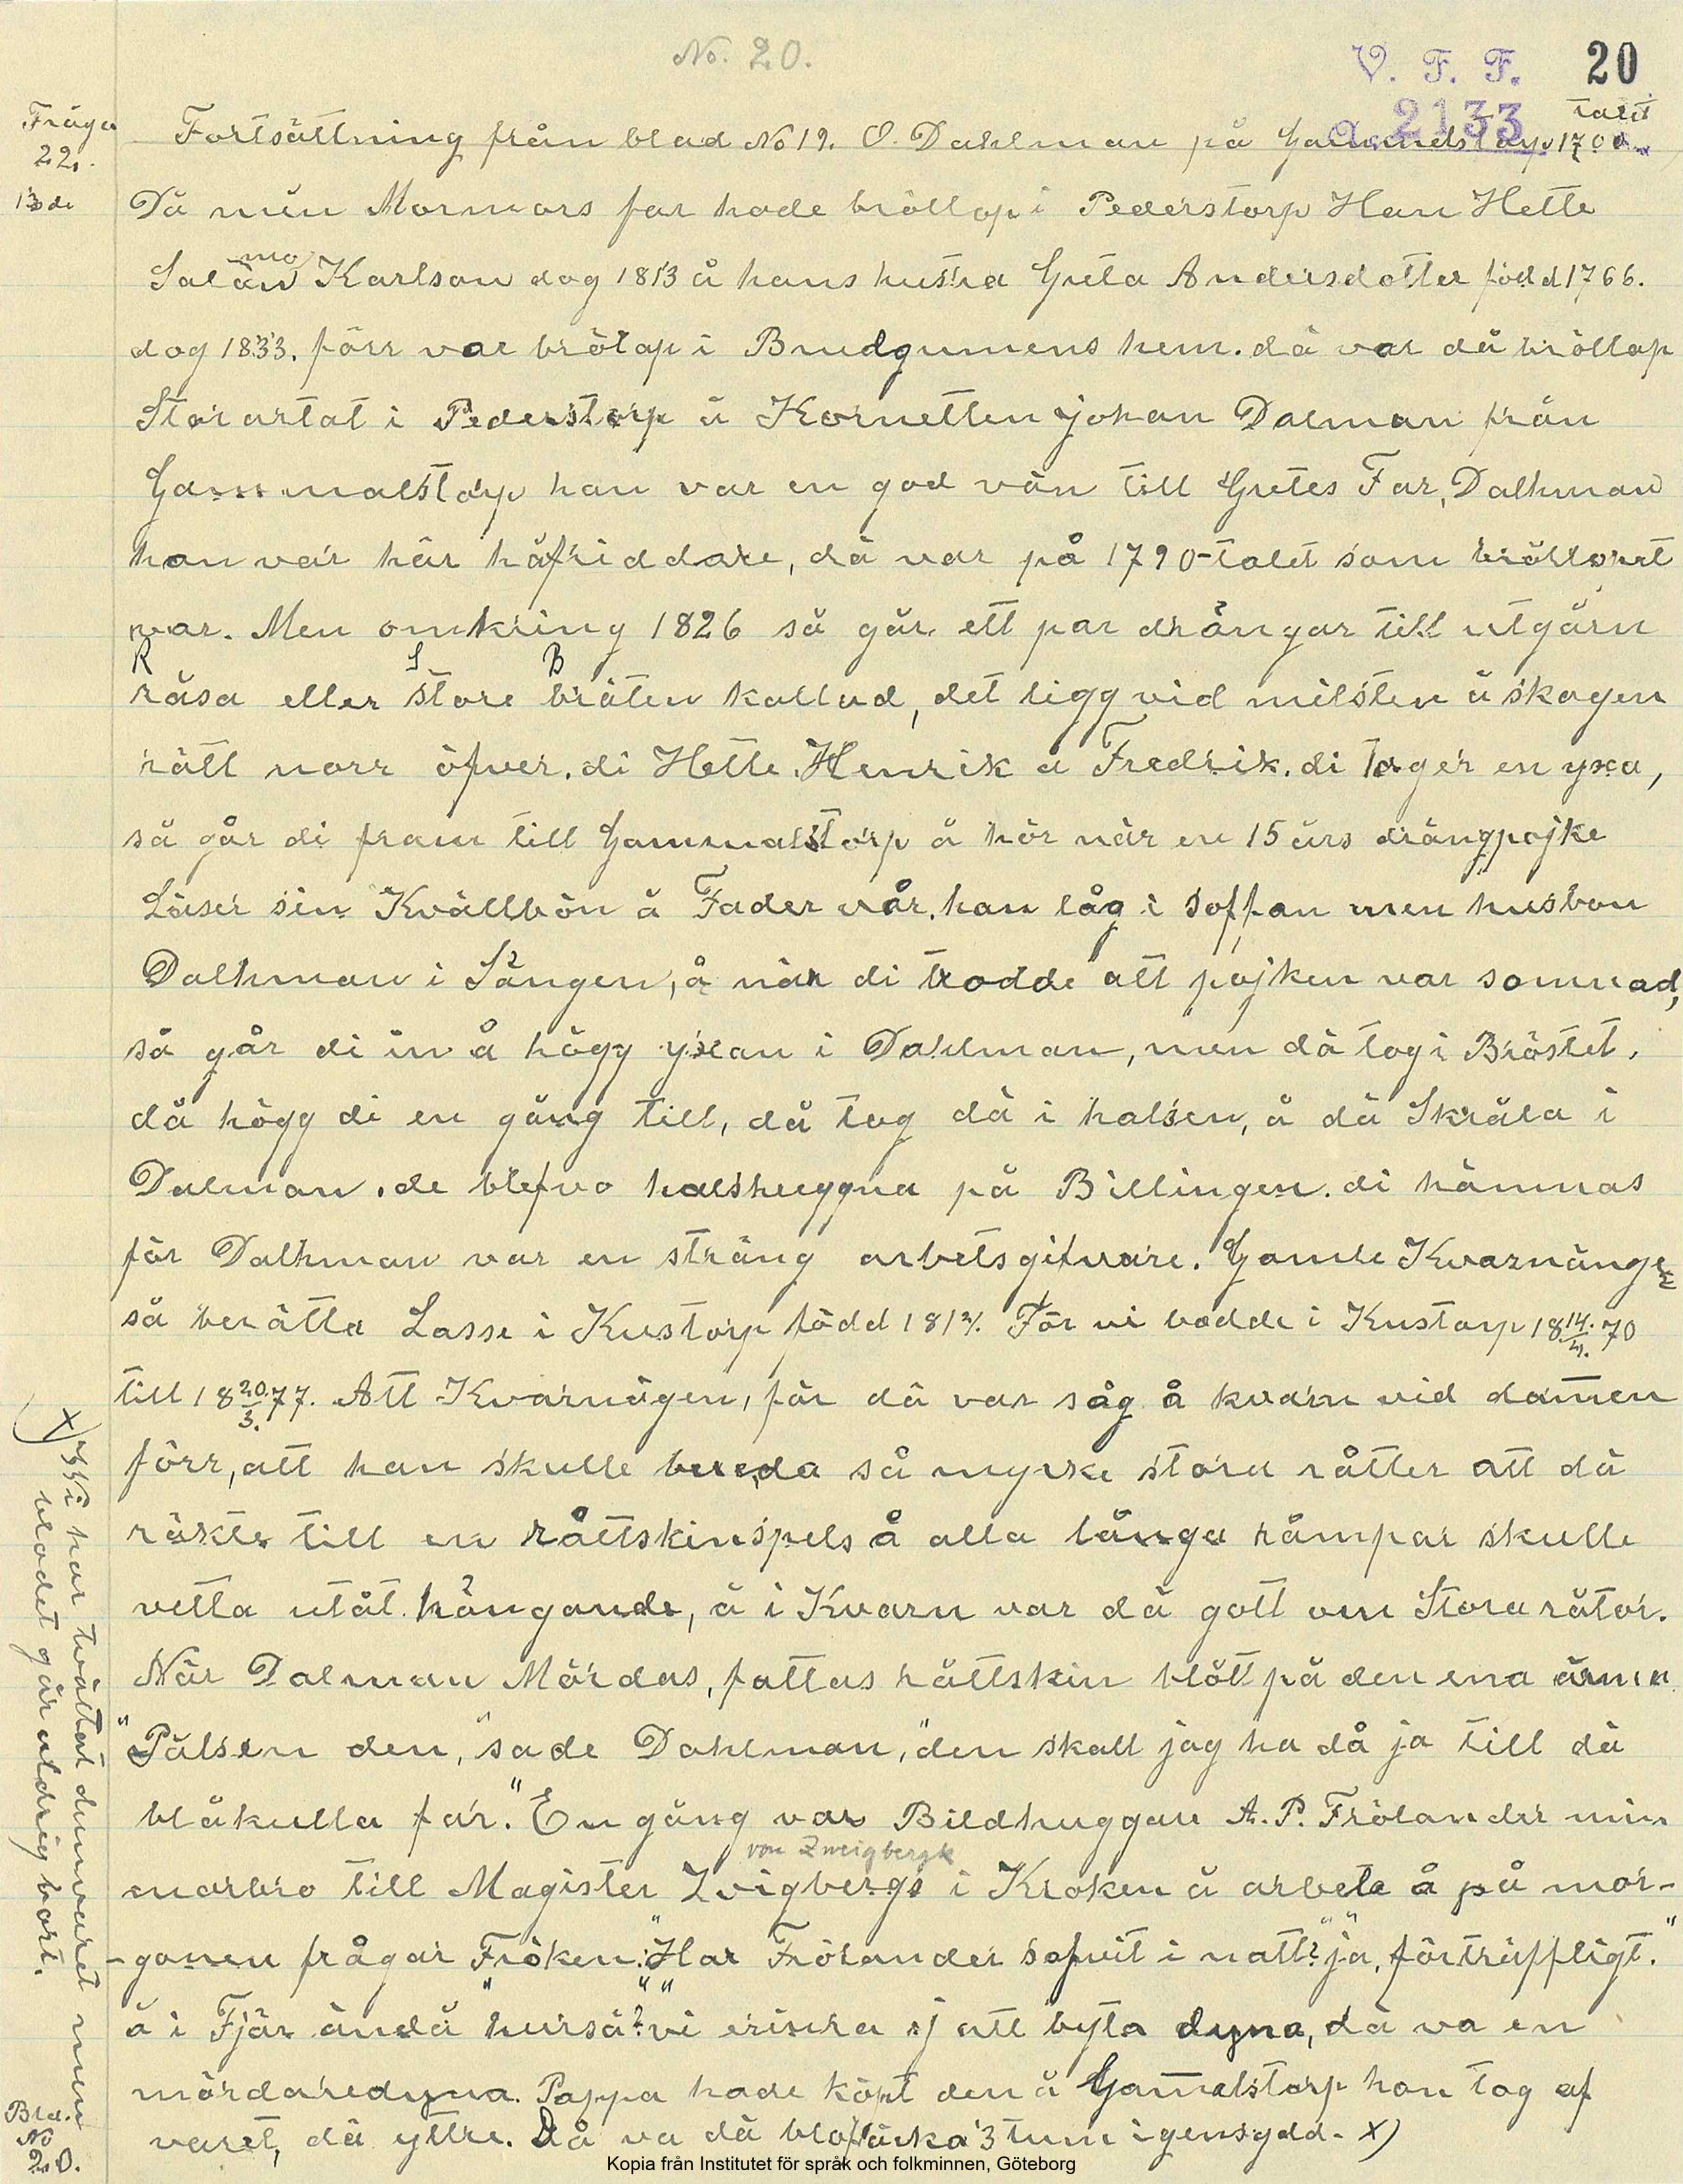 No. 20.
V. F. F. 20
2133
Fråga
22.
Fortsättning från blad No 19. O. Dahlman på Gammalstorp 1700 talet
Då min Mormors far hade bröllop i Pederstorp Han Hette
Salomo Karlson dog 1813 å hans hustra Greta Andersdotter född 1766.
dog 1833. förr var brölap i Brudgumens hem. då var då bröllap
Storartat i Pederstorp å Kornetten Johan Dalman från
Gammalstorp han var en god vän till Gretes Far, Dalhman
han var här håfriddare, då var på 1790-talet som bröllopet
var. Men omkring 1826 så går ett par drängar till utgårn
Råsa eller Store Bråten kallad, det ligg vid milsten å skogen
rätt norr öfver. di Hette Henrik å Fredrik. di tager en yxa,
så går di fram till Gammalstorp å hör när en 15 års drängpojke
Läser sin Kvällbön å Fader vår. han låg i soffan men husbon
Dalhman i Sängen, å när di trodde att pojken var somnad,
så går di in å högg yxan i Dahlman, men då tog i Bröstet.
då högg di en gång till, då tog dä i halsen, å dä Skråla i
Dalman. de blefvo halshuggna på Billingen. di hämnas
för Dalhman var en sträng arbetsgifvare. Gamle Kvarnänge
så berätta Lasse i Kustorp född 1812. För vi bodde i Kustorp 18 14/4. 70
till 18 20/3. 77. Att Kvarnägen, för dä var såg å kvarn vid damen
förr, att han skulle bereda så mycke stora råtter att dä
räkte till en råttskinspels å alla långa råmpar skulle
vetta utåt hängande, å i Kvarn var dä gott om Stora råtor.
När Dalman Mördas, fattas råttskin blött på den ena ärmen
"Pälsen den," sade Dahlman, "den skall jag ha då ja till dä
blåkulla far." En gång var Bildhuggare A. P. Frölander min
von Zweigbergk
morbro till Magister Zvigbergs i Kroken å arbeta å på mor-
-gonen frågar Fröken: "Har Frölander sofvit i natt?" "ja, förträffligt."
å i Fjär ändå "hurså?" "vi önska ej att byta dyna, dä va en
mördaredyna. Pappa hade köpt den å Gamalstorp han tog af
varet, dä yttre. Då va dä blofläcka 3 tum igensydd. x)
x) vi har tvättat dunvaret men
blodet går aldrig bort.
Bla.
No
20.
Kopia från Institutet för språk och folkminnen, Göteborg